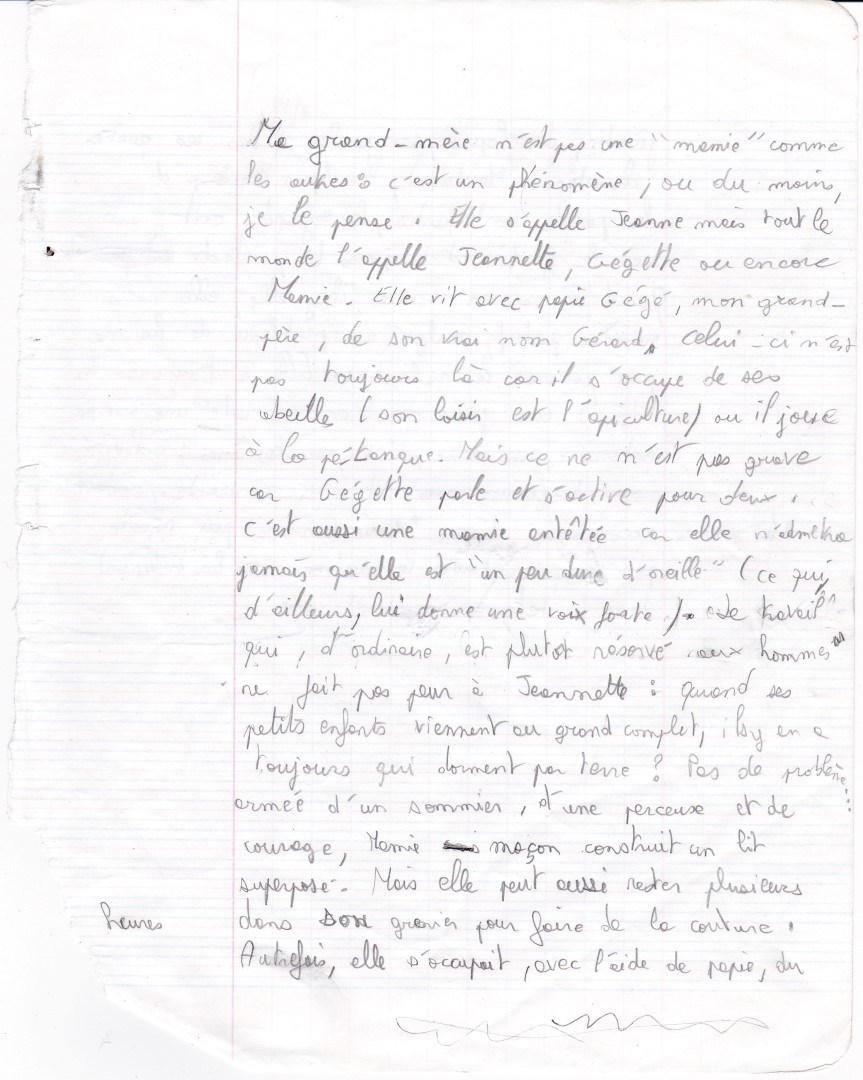 Ma grand-mère n'est pas une "mamie" comme
les autres : c'est un phénomène, ou du moins,
je le pense. Elle s'appelle Jeanne mais tout le
monde l'appelle Jeannette, Gégette ou encore
Mamie. Elle vit avec papie Gégé, mon grand-
père, de son vrai nom Gérard, celui-ci n'est
pas toujours là car il s'occupe de ses
abeille (son loisir est l'apiculture) ou il joue
à la pétanque. Mais ce ne n'est pas grave
car Gégette parle et s'active pour deux.
C'est aussi une mamie entêtée car elle n'admettra
jamais qu'elle est "un peu dure d'oreille" (ce qui,
d'ailleurs, lui donne une voix forte). Le travail
qui, d'ordinaire, est plutot réservé aux hommes
ne fait pas peur à Jeannette : quand ses
petits enfants viennent au grand complet, il y en a
toujours qui dorment par terre ? Pas de problème...
armée d'un sommier, d'une perceuse et de
courage, Mamie maçon construit un lit
superposé. Mais elle peut aussi rester plusieurs
heures dans son grenier pour faire de la couture.
Autrefois, elle s'occupait, avec l'aide de papie, du